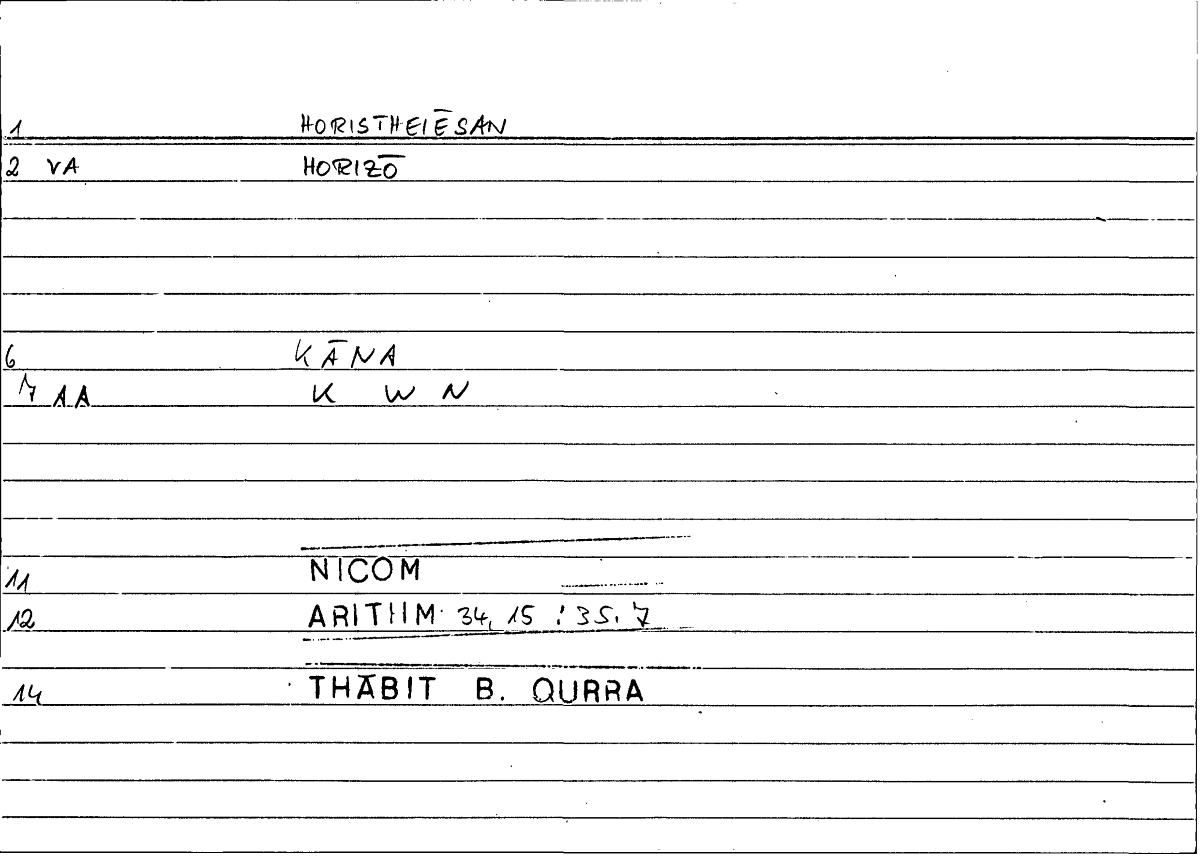 1 HORISTHEIĒSAN
2 VA HORIZŌ
6 KĀNA
7 AA K W N
11 NICOM
12 ARITHM. 34, 15 : 35. 7
14 THĀBIT B. QURRA